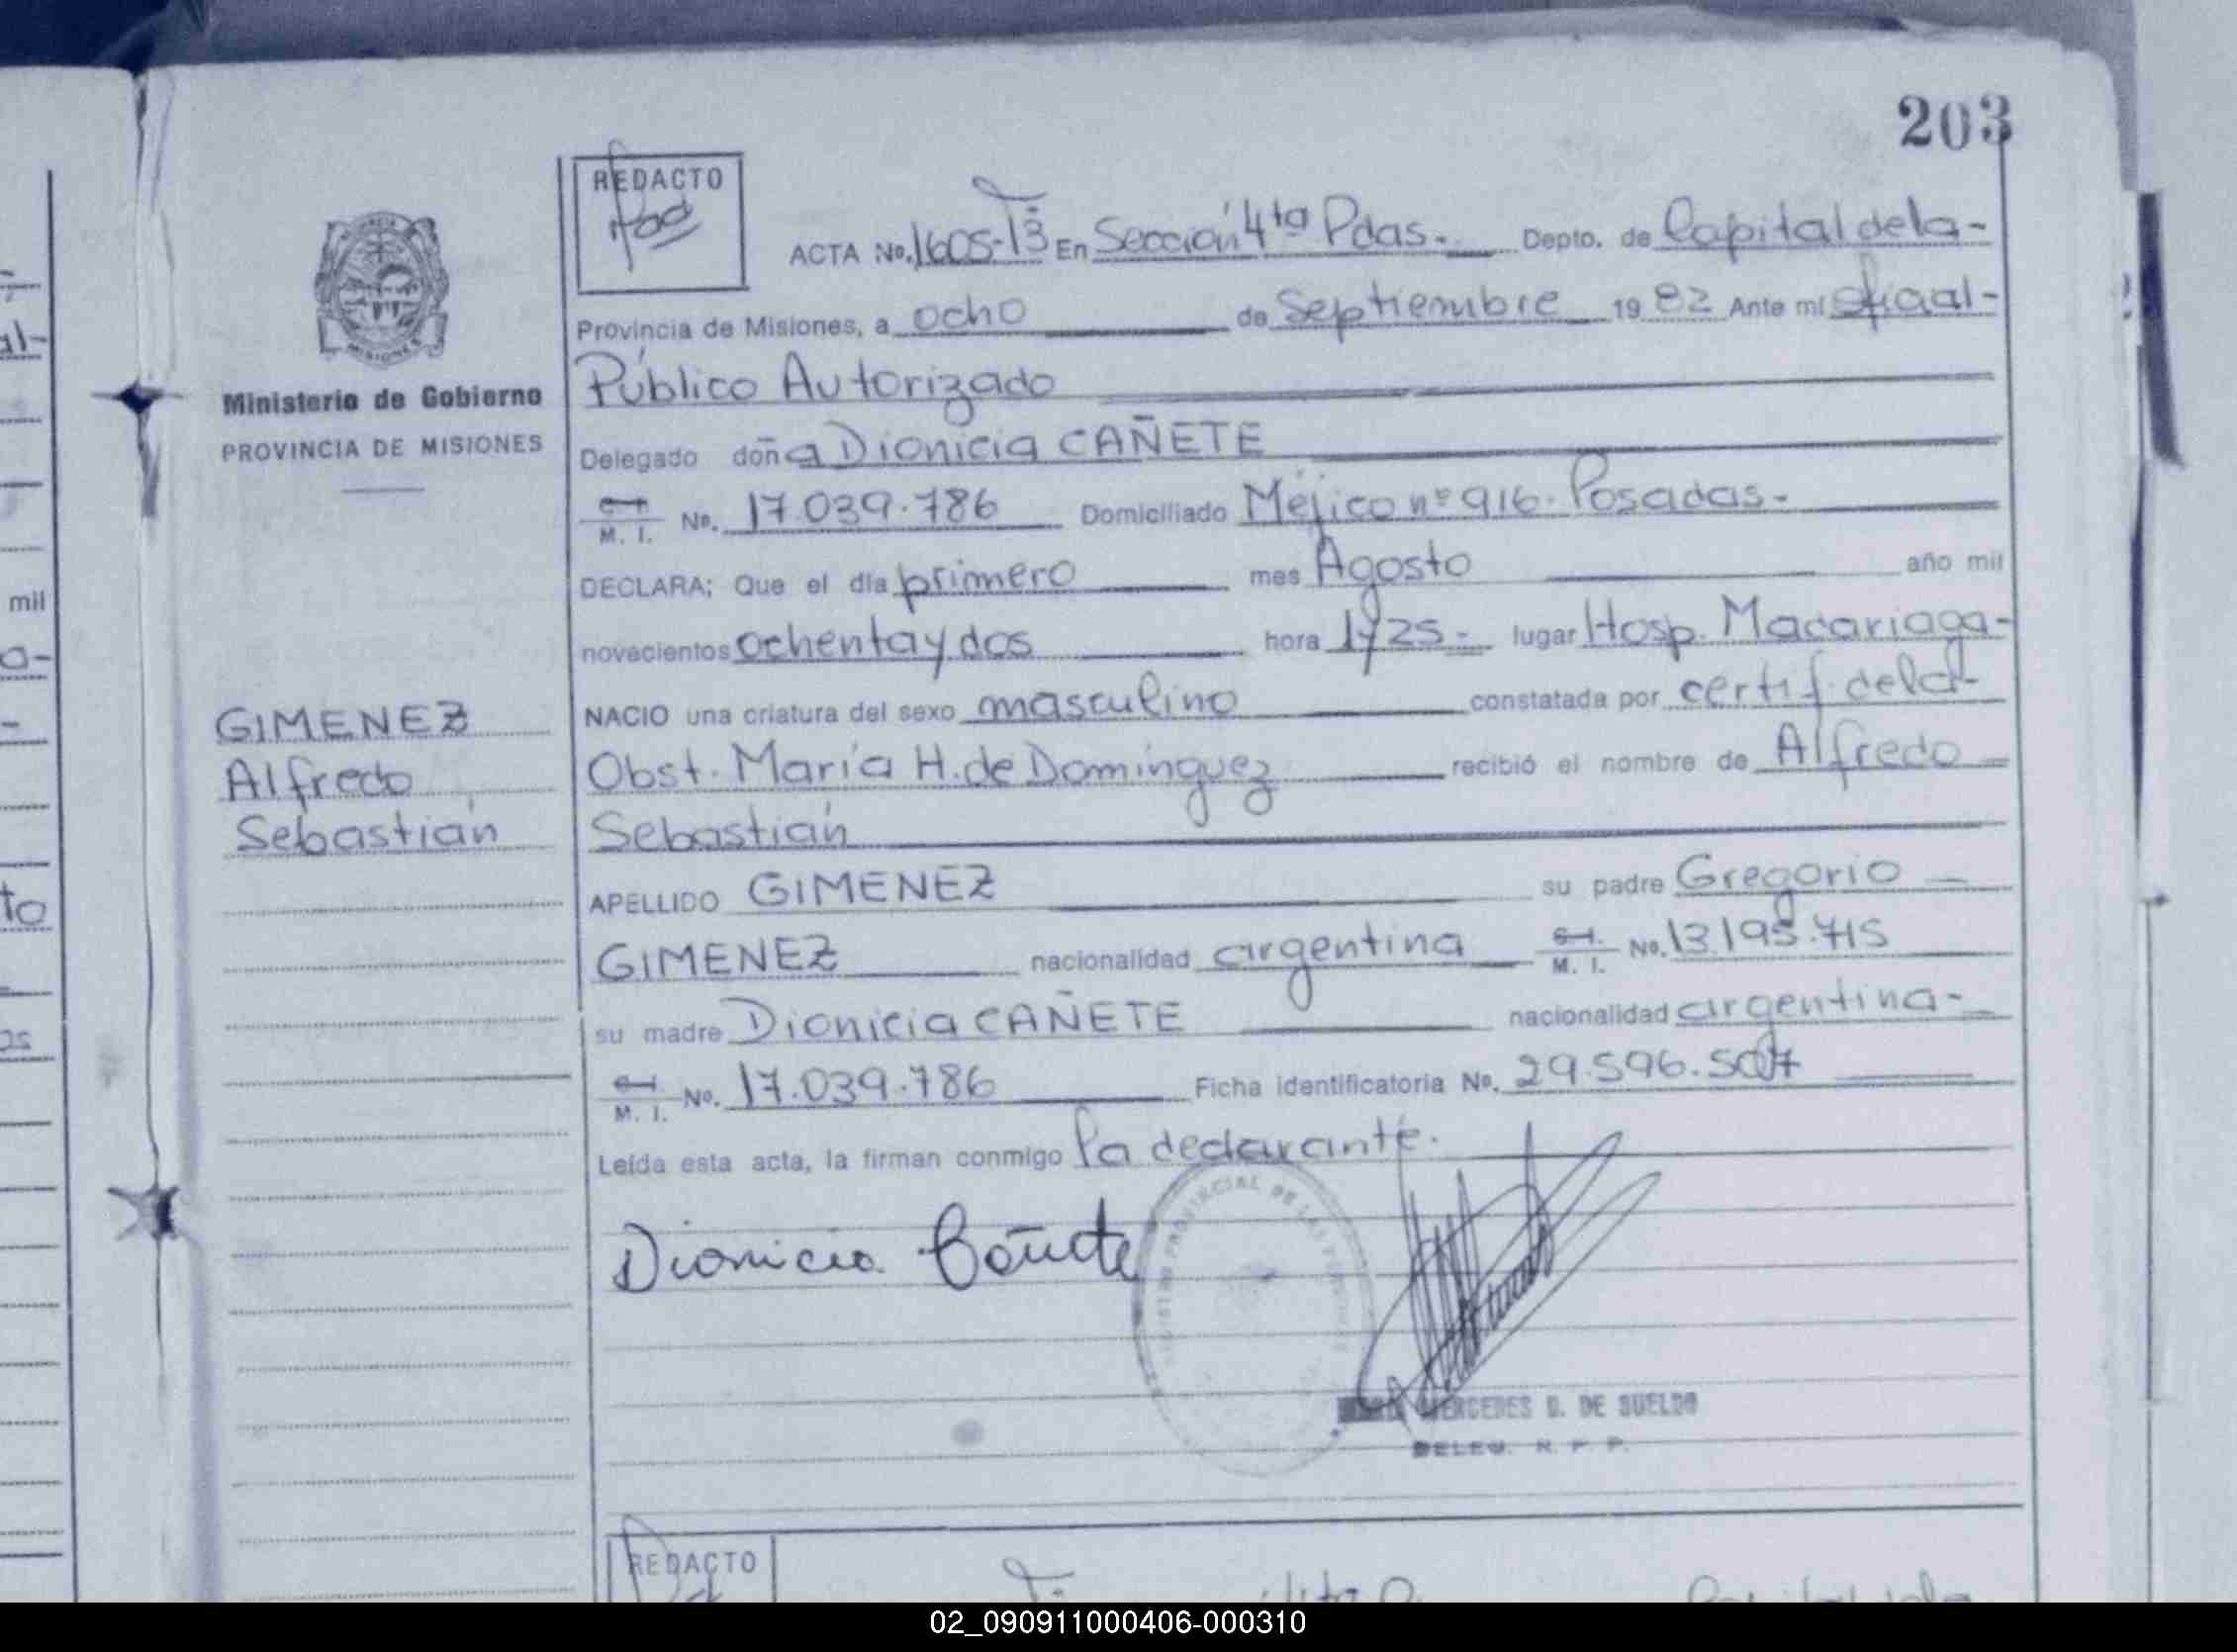 203
REDACTO
ACTA No. 1605-Tº3 En Sección 4ta Pdas. Depto. de Capital de la-
Provincia de Misiones, a ocho de Septiembre 1982 Ante mí Oficial-
Público Autorizado
Delegado doña Dionicia CAÑETE
M. I. No. 17.039.786 Domiciliado Méjico nº 916. Posadas.-
DECLARA; Que el día primero mes Agosto año mil
novecientos ochenta y dos hora 1y25.- lugar Hosp. Madariaga-
NACIO una criatura del sexo masculino constatada por certif. de la-
Obst. María H. de Domínguez recibió el nombre de Alfredo
Sebastián
APELLIDO GIMENEZ su padre Gregorio
GIMENEZ nacionalidad argentina M. I. No. 13.195.715
su madre Dionicia CAÑETE nacionalidad argentina-
M. I. No. 17.039.786 Ficha identificatoria No. 29.596.507
Leída esta acta, la firman conmigo la declarante.
Dionicia Cañete
MERCEDES D. DE SUELDO
DELEG. R. P. P.
PROVINCIA DE MISIONES
Ministerio de Gobierno
PROVINCIA DE MISIONES
GIMENEZ
Alfredo
Sebastián
REDACTO
mil
02_090911000406-000310